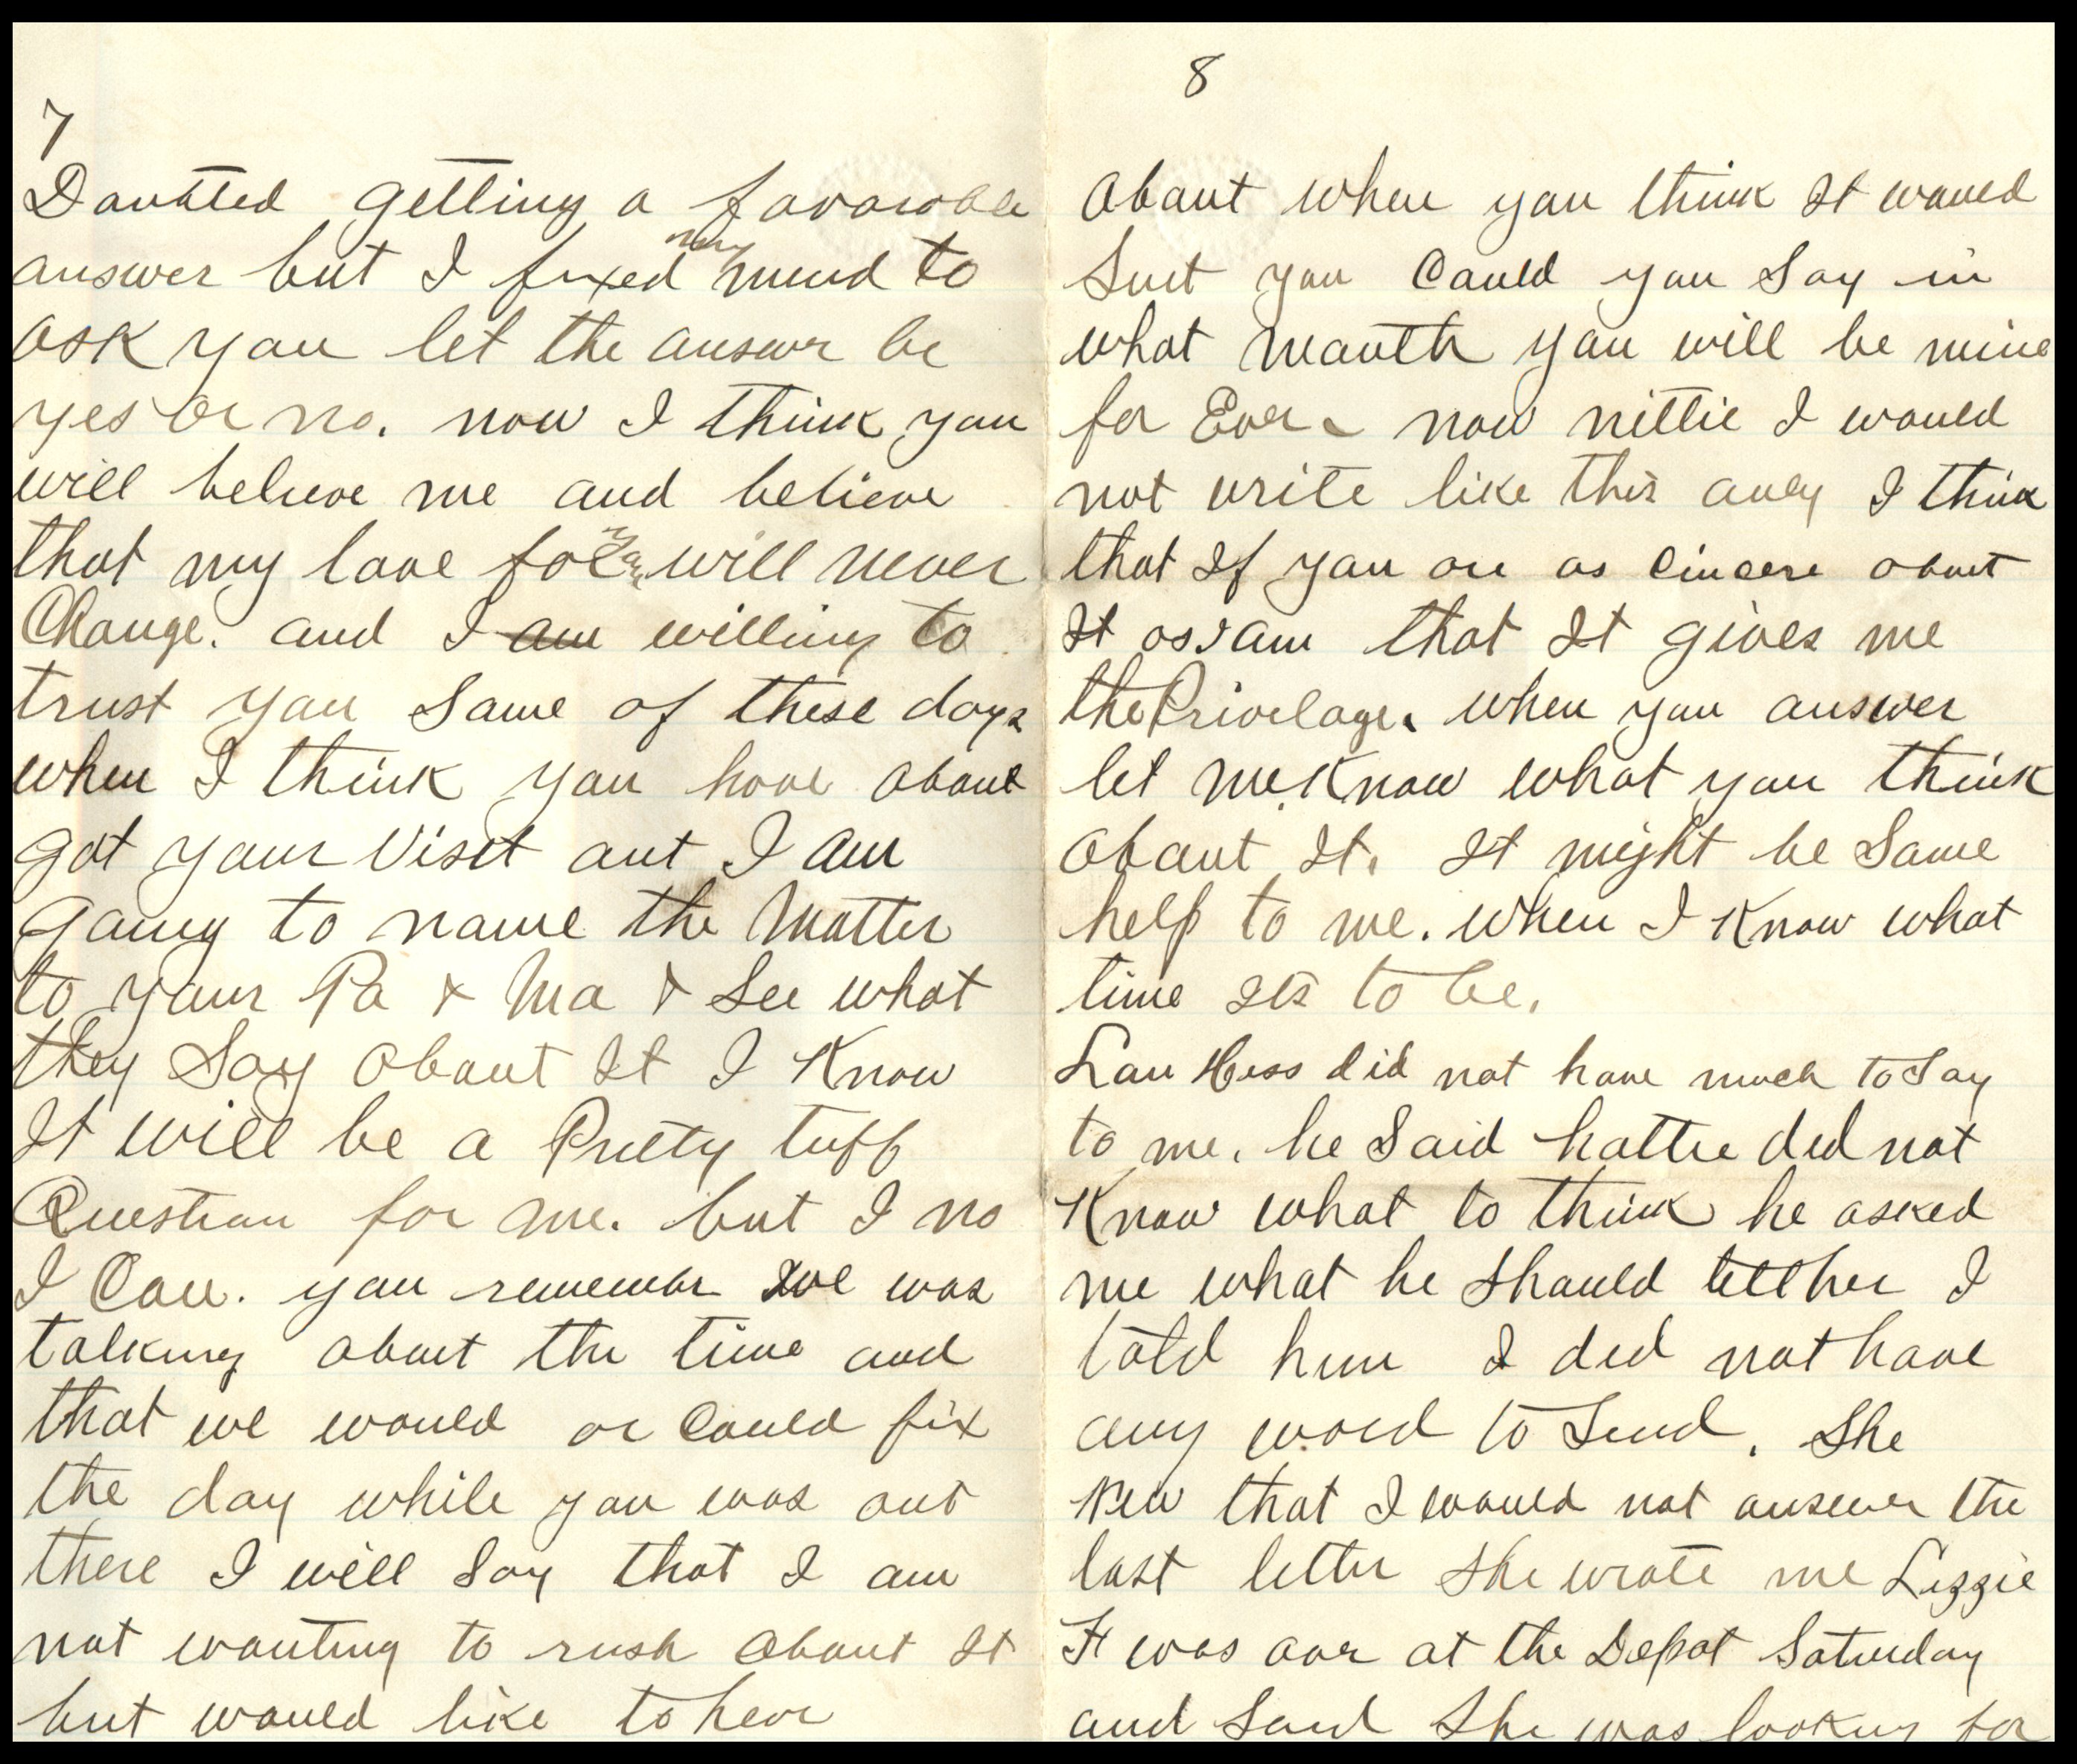 7
Doubted getting a favorable
answer but I fixed my mind to
ask you let the answr be
yes or no. now I think you
will believe me and believe
that my love for you will never
Change. and I am willing to
trust you Some of these days
when I think you have about
got your Visit out I am
going to name the Matter
to your Pa & Ma & See what
they Say about It I Know
It will be a Pretty tuff
Question for me. but I no
I Can. you remembr we was
talking about the time and
that we would or Could fix
the day while you was out
there I will Say that I am
not wanting to rush about It
but would like to hear
8
about when you think It would
Suit you Could you Say in
what Month you will be mine
for Ever. now nittie I would
not write like this only I think
that If you are as Cincere about
It as I am that It gives me
the Privelage. when you answer
let me Know what you think
about It. It might be Some
help to me. when I Know what
time Its to be.
Lou Hess did not have much to Say
to me. he Said hattie did not
Know what to think he asked
me what he Should tell her I
told him I did not have
any word to Send. She
New that I would not answer the
last letter She wrote me Lizzie
H was our at the Depot Saturday
and Said She was looking for